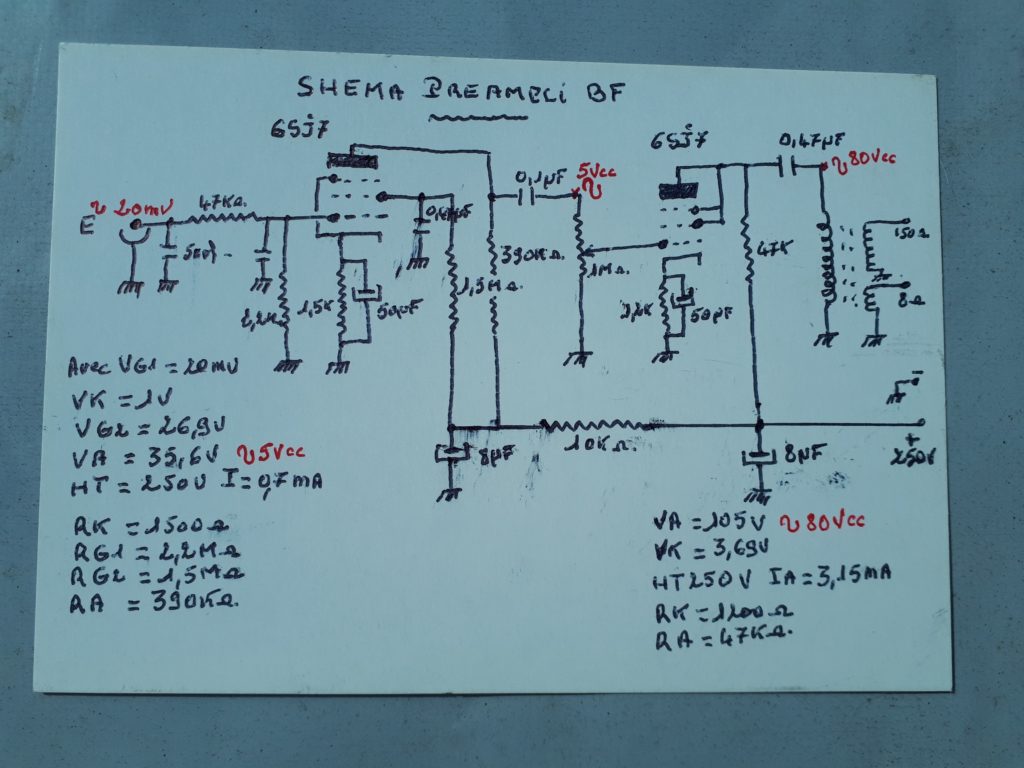 SHEMA PREAMPLI BF
6SJ7
6SJ7
0,47µF
~ 80Vcc
5Vcc
~
0,1µF
47KΩ
~ 20mV
E
390KΩ.
1MΩ.
47K
150Ω
8Ω
1,5K
50µF
50µF
1,5MΩ
Avec VG1 = 20mV
VK = 1V
VG2 = 26,9V
VA = 35,6V ~5Vcc
HT = 250V I = 0,7mA
RK = 1500Ω
RG1 = 2,2MΩ
RG2 = 1,5MΩ
RA = 390KΩ.
8µF
10KΩ.
8µF
-
+
250V
VA = 105V ~ 80Vcc
VK = 3,69V
HT 250V IA = 3,15mA
RK = 1200Ω
RA = 47KΩ.